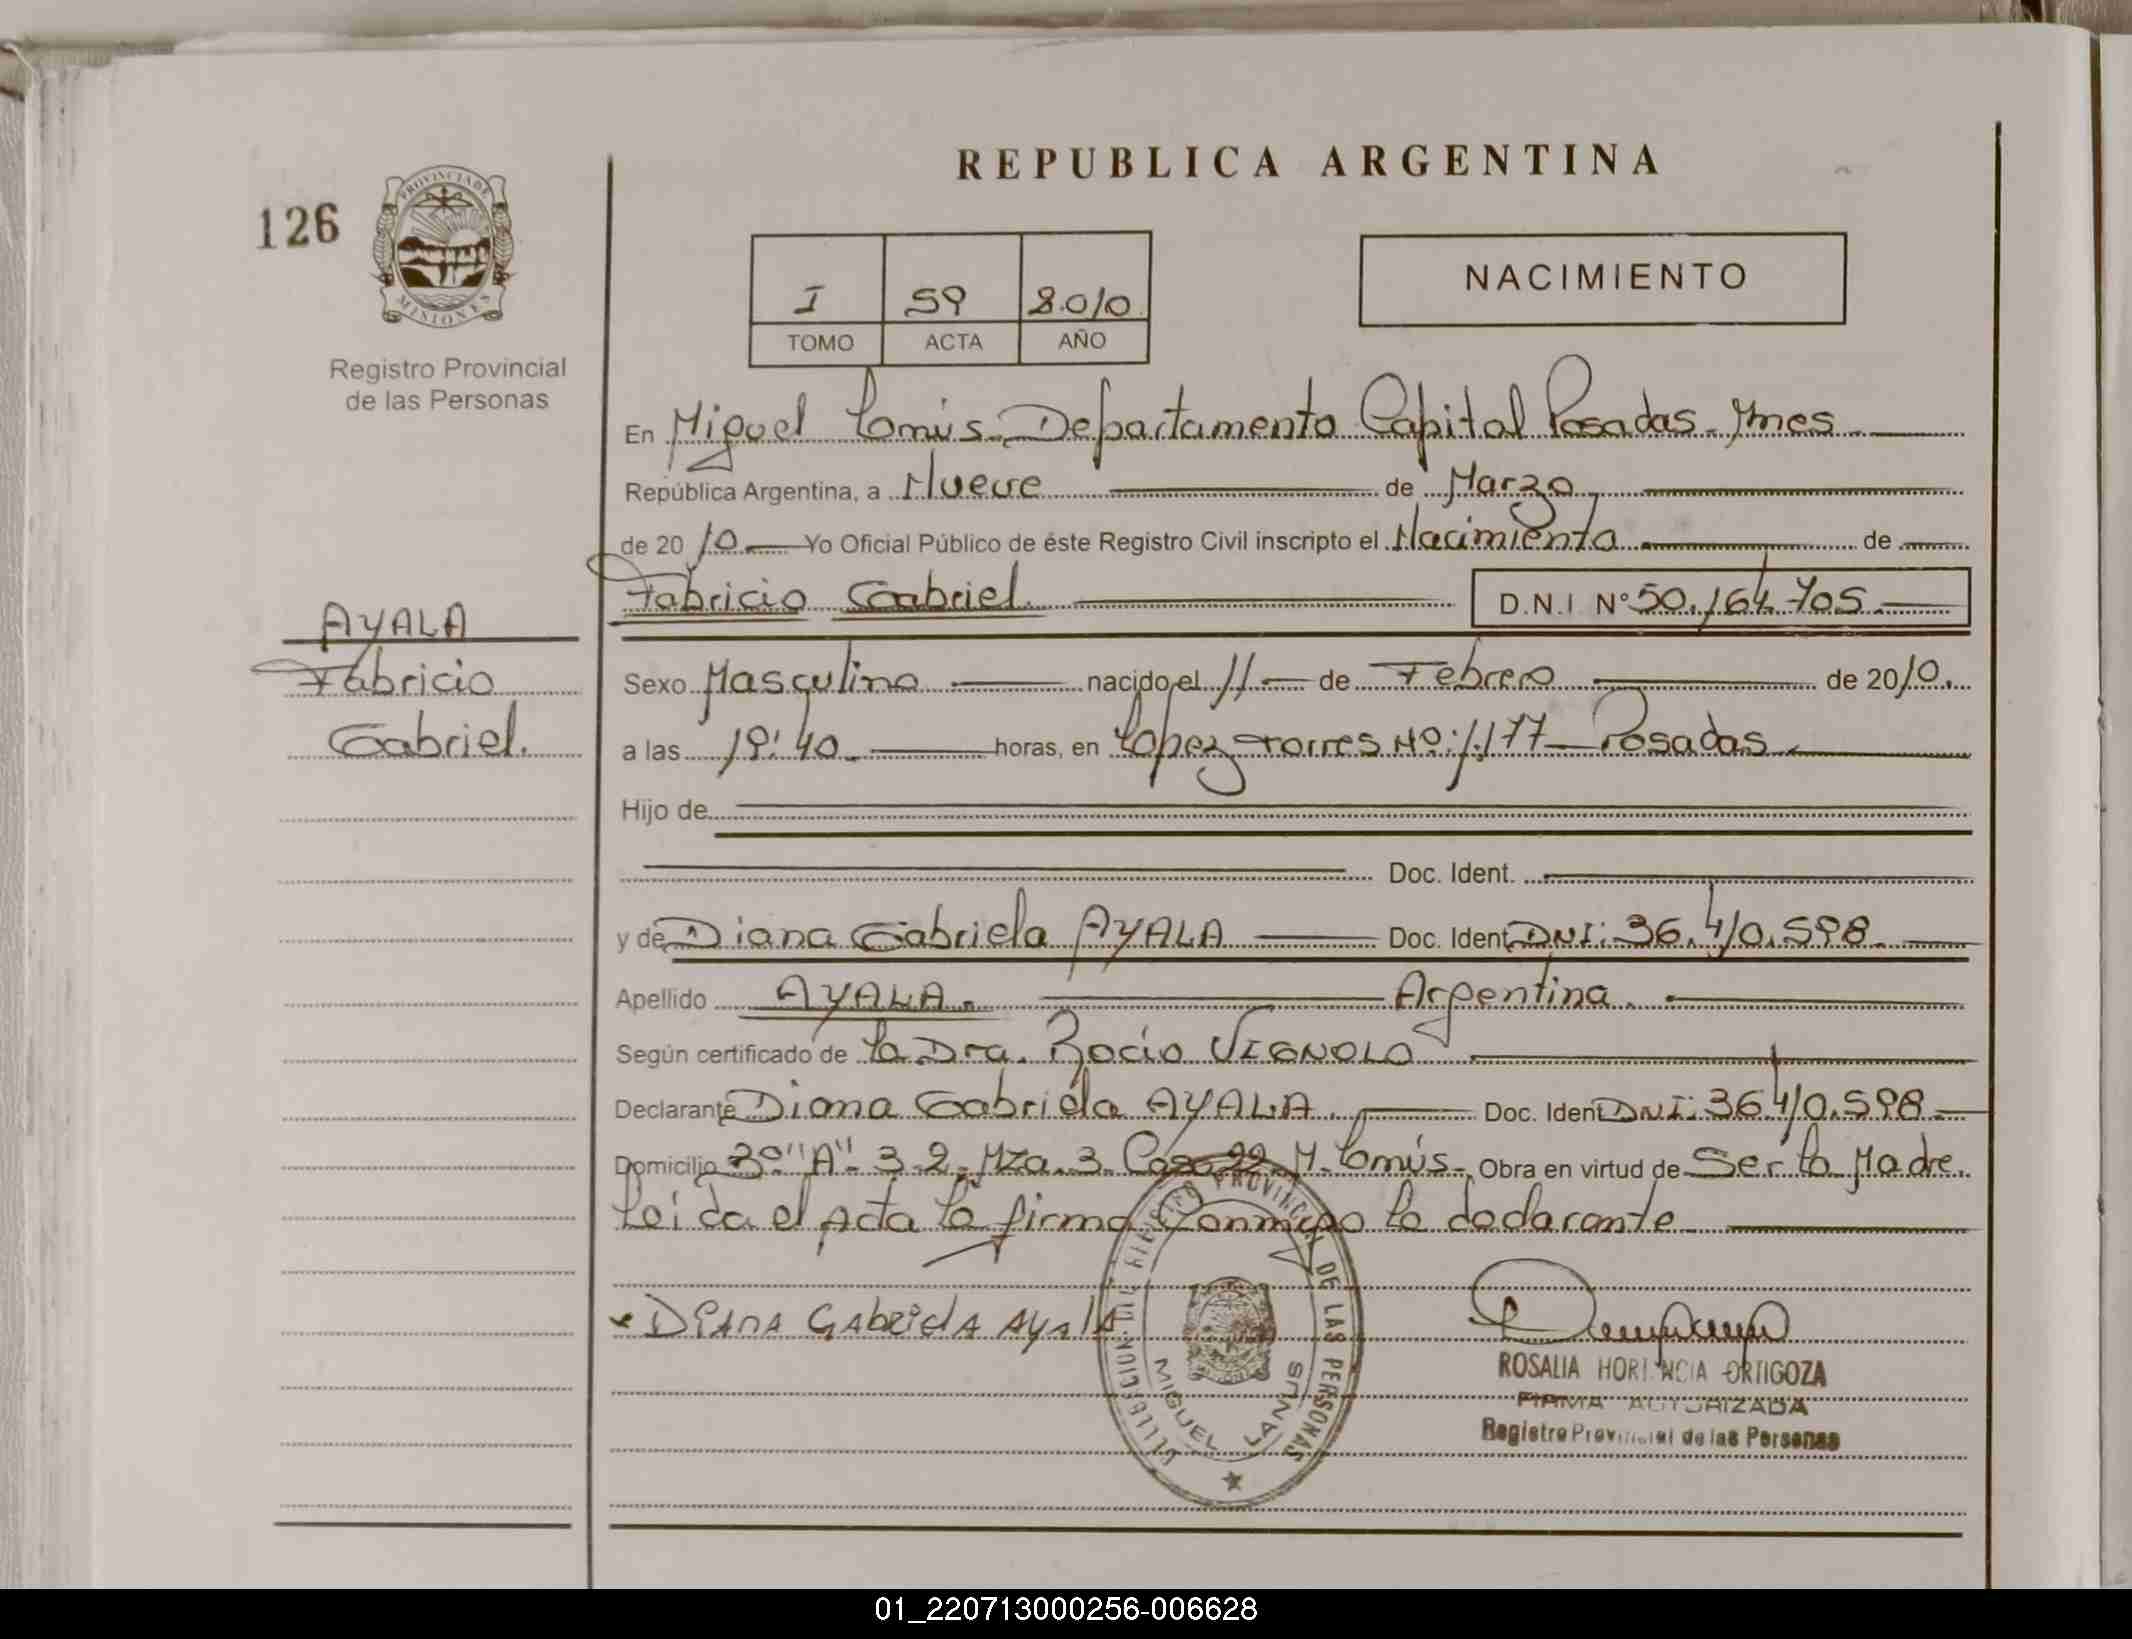 REPUBLICA ARGENTINA
126
PROVINCIA DE
MISIONES
Registro Provincial
de las Personas
I 59 2.010
TOMO ACTA AÑO
NACIMIENTO
En Miguel Lanús Departamento Capital Posadas - Mnes
República Argentina, a Nueve de Marzo
de 20 10 Yo Oficial Público de éste Registro Civil inscripto el Nacimiento de
Fabricio Gabriel. D.N.I Nº 50.164.705.
AYALA
Fabricio
Gabriel.
Sexo Masculino nacido el 11 de Febrero de 20 10.
a las 19:40 horas, en López Torres Nº: 1.177 Posadas
Hijo de
Doc. Ident.
y de Diana Gabriela AYALA Doc. Ident DNI: 36.410.598.
Apellido AYALA. Argentina.
Según certificado de la Dra. Rocío VIGNOLO
Declarante Diana Gabriela AYALA. Doc. Ident DNI: 36.410.598
Domicilio "A" 3.2. Mza. 3. Casa 22 M. Lanús. Obra en virtud de Ser la Madre.
Leída el Acta la firma Conmigo la declarante
Diana Gabriela Ayala
REGISTRO PROVINCIAL DE LAS PERSONAS
MIGUEL LANUS
ROSALIA HORTENCIA ORTIGOZA
FIRMA AUTORIZADA
Registro Provincial de las Personas
01_220713000256-006628